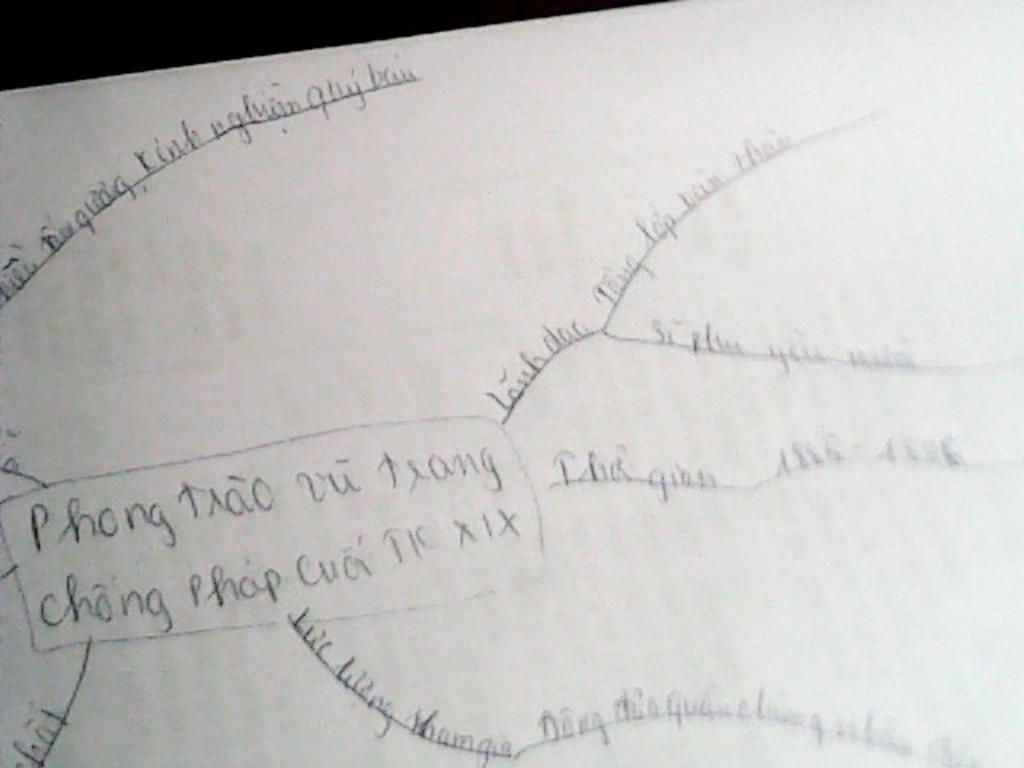 tấm gương, kinh nghiệm quý báu
Lãnh đạo
Tầng lớp văn thân
Sĩ phu yêu nước
Phong trào vũ trang
chống Pháp cuối TK XIX
Thời gian
Lực lượng tham gia
Đông đảo quần chúng nhân